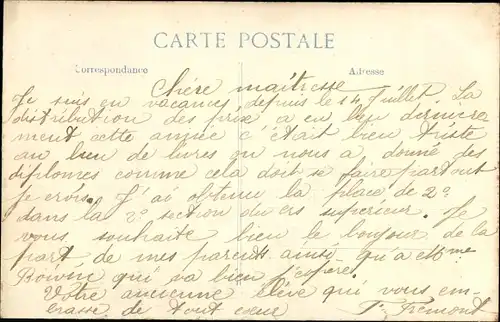 CARTE POSTALE
Correspondance
Adresse
Chère maîtresse
Je suis en vacances depuis le 14 Juillet. La
distribution des prix a eu lieu dernière
ment cette année c'était bien triste
au lieu de livres on nous a donné des
diplomes comme cela doit se faire partout
je crois. J'ai obtenu la place de 2e
dans la 2e section du crs supérieur. Je
vous souhaite bien le bonjour de la
part de mes parents ainsi qu'a Mme
qui va bien j'espère.
Votre ancienne élève qui vous em-
brasse de tout coeur
Fremont